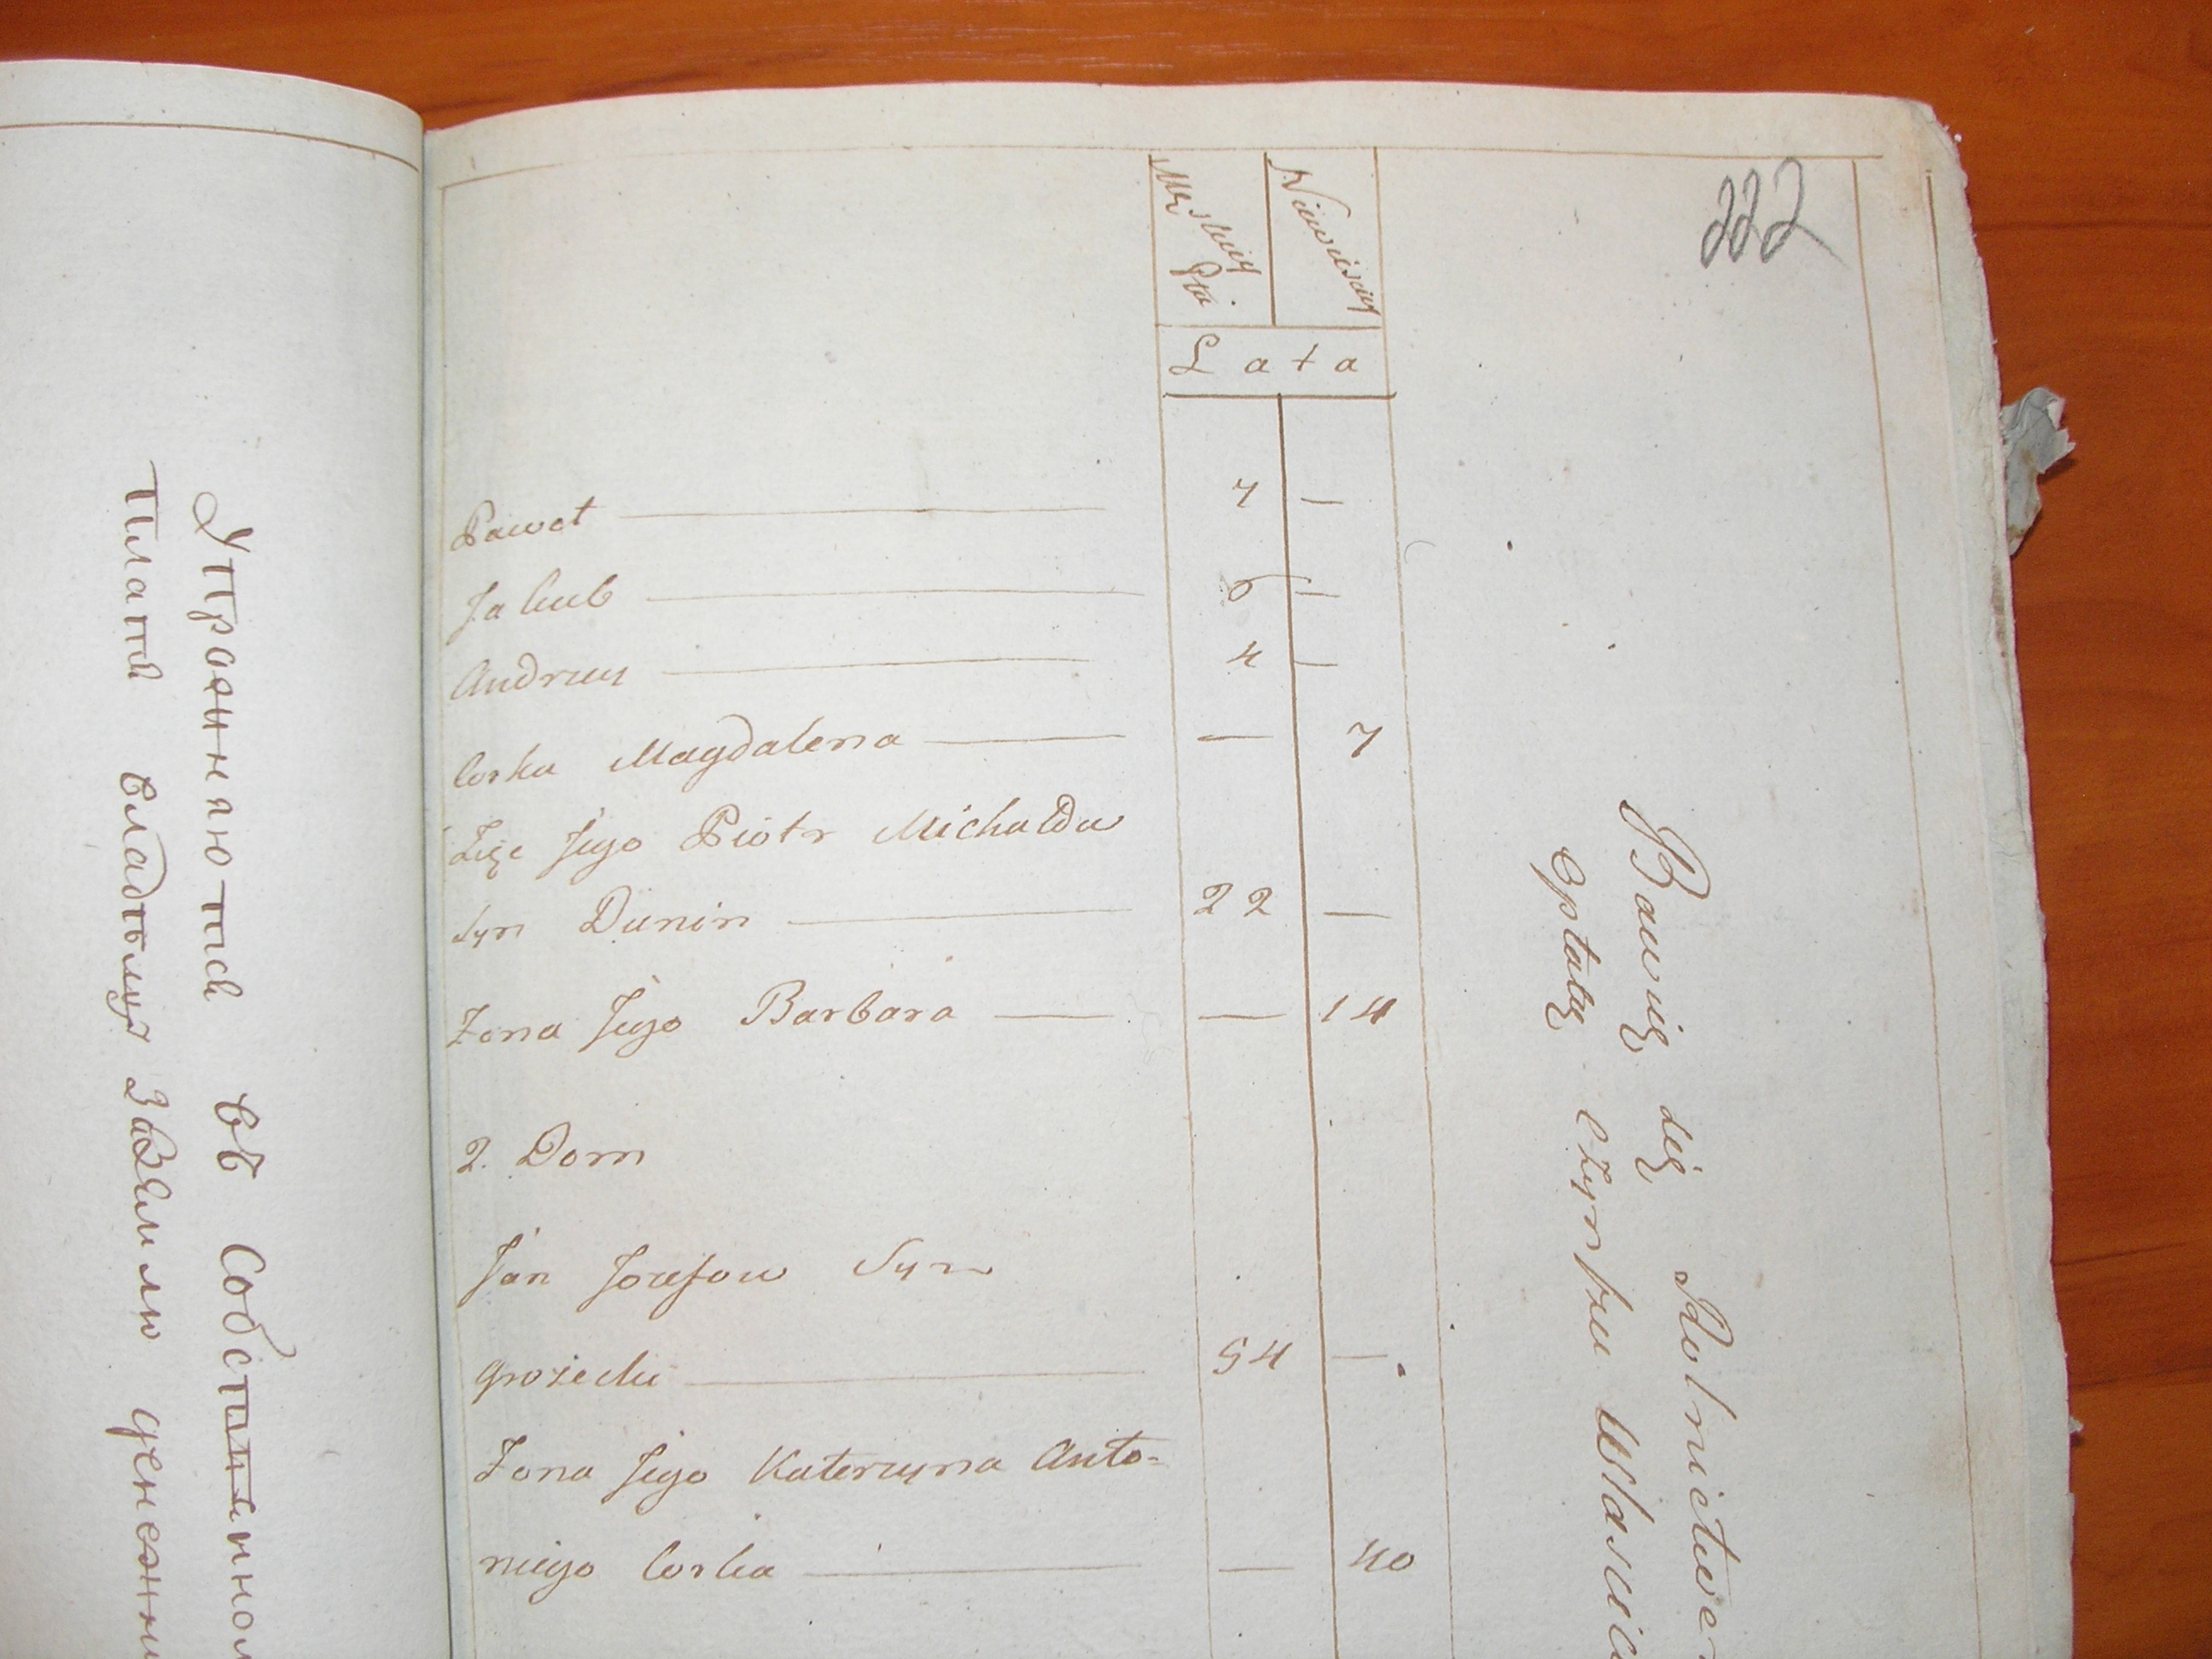 Упражняются въ Собственном
платя владѣлцу за землю денежны
222
Męskiey Płci
Niewiesciey
Lata
Paweł — 7 —
Jakub — 6 —
Andrzey — 4 —
Corka Magdalena — — 7
Zięc Jego Piotr Michałow
Syn Dunin — 22 —
Zona Jego Barbara — — 14
2. Dom
Jan Jozefow Syn
Grozecki — 54 —
Zona Jego Katerzyna Anto=
niego Corka — — 40
Bawią się Rolnictwe
Opłatą czynszu Własci